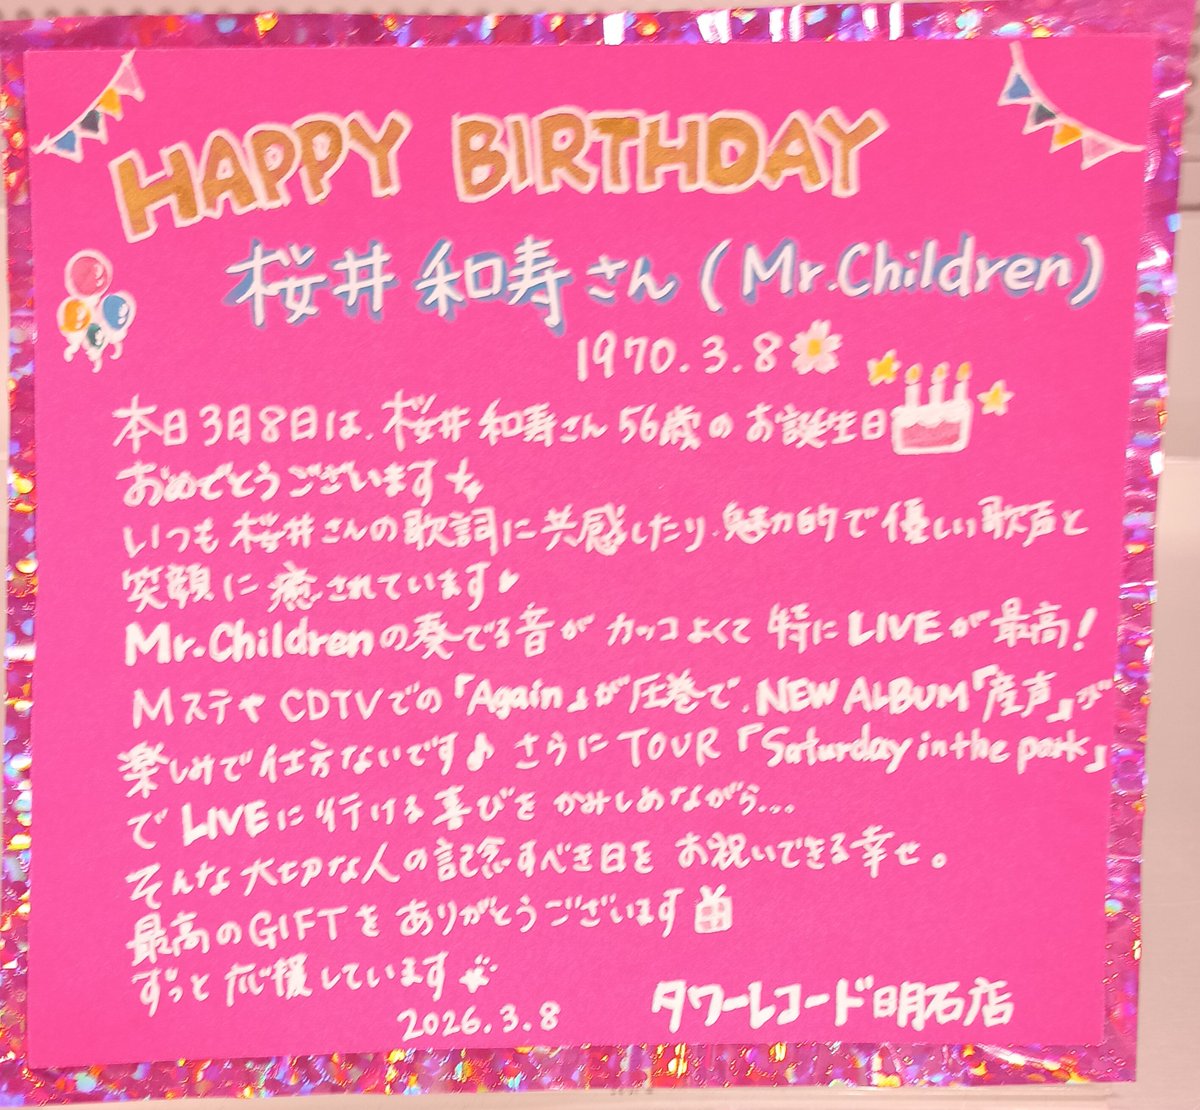 HAPPY BIRTHDAY
桜井和寿さん(Mr.Children)
1970.3.8
本日3月8日は、桜井和寿さん56歳のお誕生日
おめでとうございます
いつも桜井さんの歌詞に共感したり、魅力的で優しい歌声と
笑顔に癒されています
Mr.Childrenの奏でる音がカッコよくて特にLIVEが最高!
MステやCDTVでの『Again』が圧巻で、NEW ALBUM『産声』が
楽しみで仕方ないです♪さらにTOUR『Saturday in the park』
でLIVEに行ける喜びをかみしめながら...
そんな大切な人の記念すべき日をお祝いできる幸せ。
最高のGIFTをありがとうございます
ずっと応援しています
2026.3.8 タワーレコード明石店